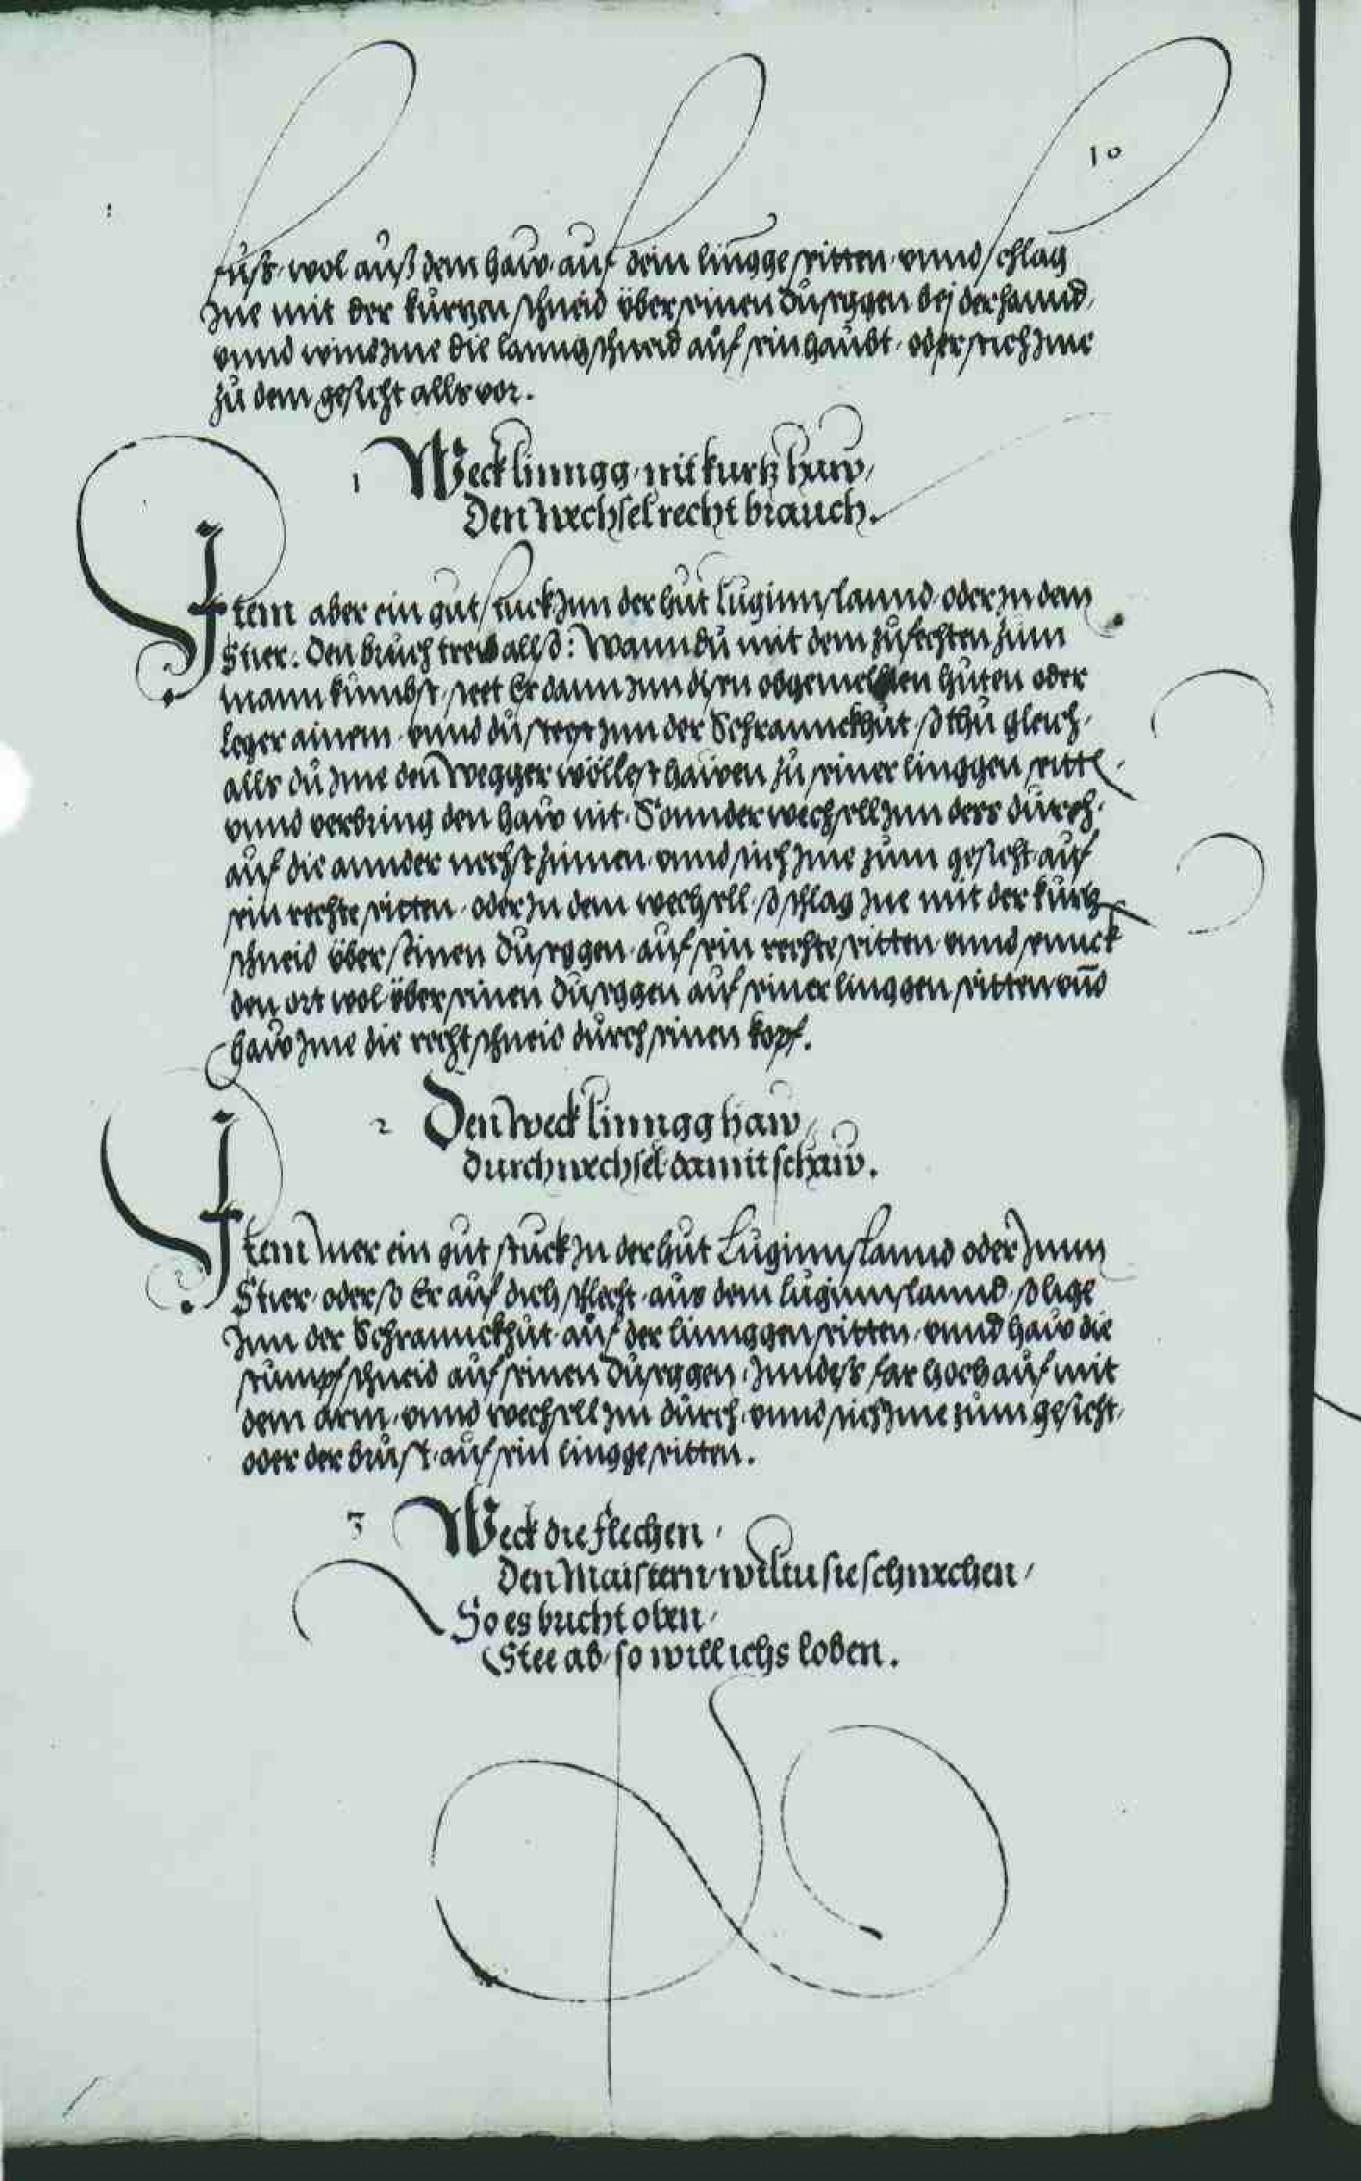 10
fuß wol auß dem haw auf dein lingge seitten vnnd schlag
Ime mit der kurtzen schneid über seinen dusęggen bej der hannd,
vnnd wind Ime die lanng schneid auf sein haubt, oder stich Ime
zu dem gesicht alls vor.
1 Weck linngg, nit kurtz haw,
Den wechsel recht brauch.
Item aber ein gut stuck Inn der hut Luginnslannd oder In dem
Stier. Den bruch treib allso: Wann du mit dem zufechten zum
mann kumbst, steet Er dann Inn disen obgemelten huten oder
leger ainem, vnnd du steest Inn der Schranckhut, so thu gleich,
alls du Ime den Wegger wöllest hawen zu seiner linggen seitt,
vnnd verbring den haw nit, Sonnder wechsell Inn dess durch,
auf die annder nechst zinnen, vnnd stich Ime zum gesicht auf
sein rechte seitten, oder In dem wechsell, so schlag Ime mit der kurtz
schneid über seinen Dusęggen auf sein rechte seitten vnnd senncck
den ort wol über seinen Dusęggen auf seiner linggen seitten vnd
haw Ime die recht schneid durch seinen kopf.
2 Den Weck linngg haw,
durchwechsel damit schaw.
Item mer ein gut stuck In der hut Luginnslannd oder Inn
Stier, oder so Er auf dich schlecht, aus dem Luginnslannd, so lige
Inn der Schranckhut, auf der linnggen seitten, vnnd haw die
stumpf schneid auf seinen Dusęggen, Inndess far hoch auf mit
dem arm, vnnd wechsell Im durch, vnnd stich Ime zum gesicht,
oder der brust, auf sein lingge seitten.
3 Weck die flechen,
Den Maistern, wiltu sie schwechen,
So es bucht oben,
Stee ab, so will ichs loben.